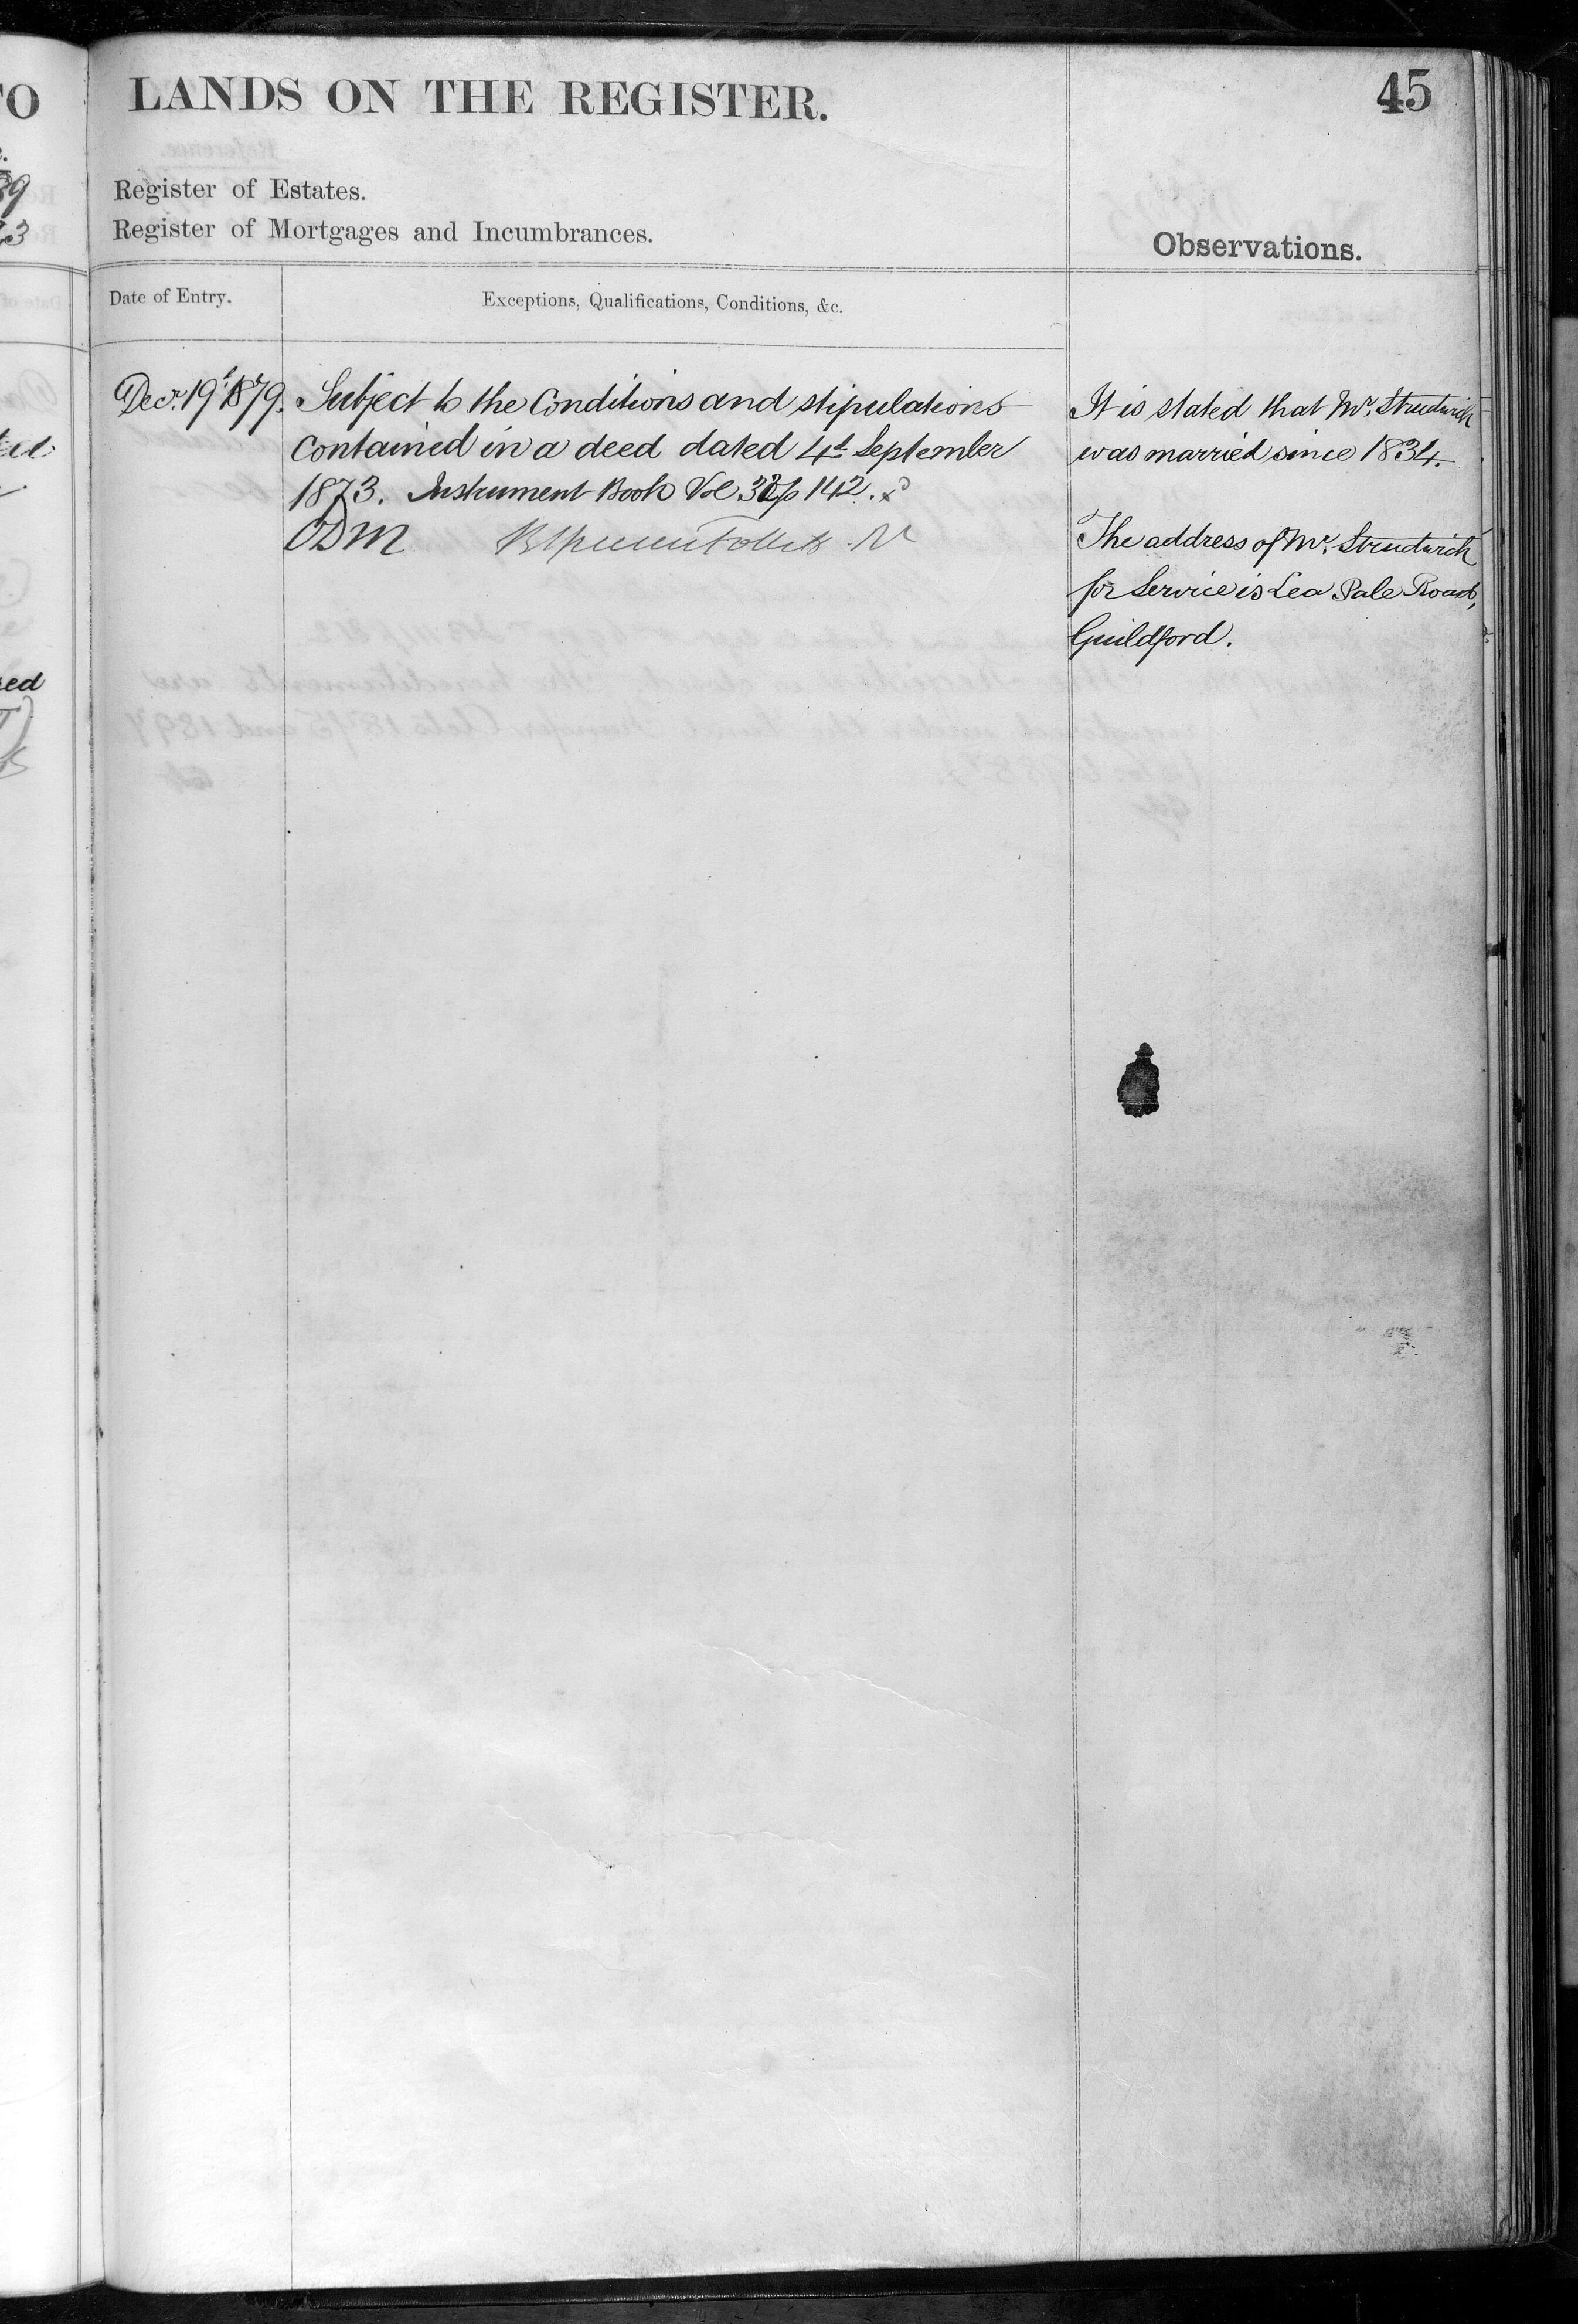 LANDS ON THE REGISTER.
45
Register of Estates.
Register of Mortgages and Incumbrances.
Observations.
Date of Entry.
Exceptions, Qualifications, Conditions, &c.
Decr. 19th 1879.
Subject to the Conditions and stipulations
contained in a deed dated 4th September
1873. Instrument Book Vol p 142.
ODM
It is stated that Mr. Strudwick
was married since 1834.
The address of Mr. Strudwick
for Service is Lea Pale Road,
Guildford.